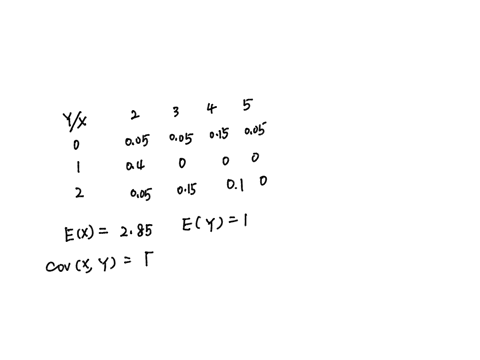 Y/X 2 3 4 5
0 0.05 0.05 0.15 0.05
1 0.4 0 0 0
2 0.05 0.15 0.1 0
E(X) = 2.85 E(Y) = 1
Cov(X, Y) = Γ